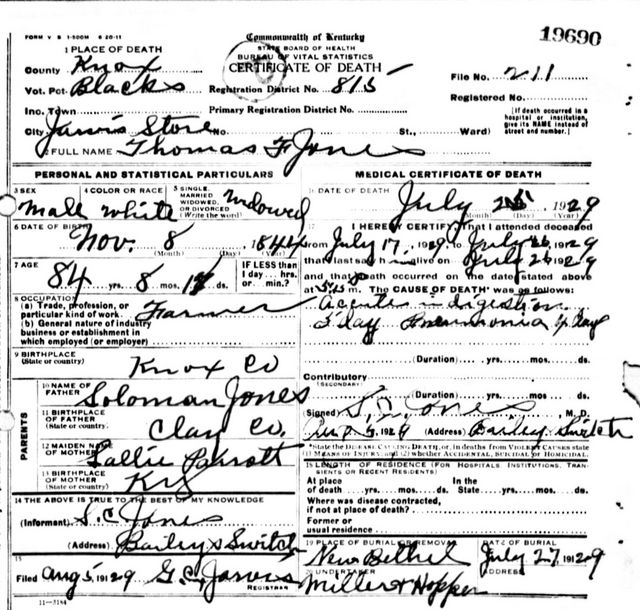 FORM V S 1-500M 6 20-11
Commonwealth of Kentucky
STATE BOARD OF HEALTH
BUREAU OF VITAL STATISTICS
CERTIFICATE OF DEATH
19690
1 PLACE OF DEATH
County Knox
Vot. Pct. Blacks
Inc. Town
City Jarvis Store No. St., Ward)
Registration District No. 815
Primary Registration District No.
File No. 211
Registered No.
[If death occurred in a hospital or institution, give its NAME instead of street and number.]
2 FULL NAME Thomas F Jones
PERSONAL AND STATISTICAL PARTICULARS
3 SEX
Male
4 COLOR OR RACE
White
5 SINGLE, MARRIED WIDOWED, OR DIVORCED (Write the word)
Widowed
6 DATE OF BIRTH
Nov. 8 1844
(Month) (Day) (Year)
7 AGE
84 yrs. 8 mos. ds.
IF LESS than 1 day... hrs. or... min?
8 OCCUPATION
(a) Trade, profession, or particular kind of work Farmer
(b) General nature of industry business or establishment in which employed (or employer)
9 BIRTHPLACE
(State or country) Knox Co
PARENTS
10 NAME OF FATHER Soloman Jones
11 BIRTHPLACE OF FATHER
(State or country) Clay Co.
12 MAIDEN NAME OF MOTHER Sallie Parrott
13 BIRTHPLACE OF MOTHER
(State or country) Ky
14 THE ABOVE IS TRUE TO THE BEST OF MY KNOWLEDGE
(Informant) S.C. Jones
(Address) Baileys Switch
15
Filed Aug 5, 1929 G.C. Jarvis
REGISTRAR
11-3184
MEDICAL CERTIFICATE OF DEATH
16 DATE OF DEATH
July 1929
(Month) (Day) (Year)
17 I HEREBY CERTIFY, That I attended deceased
from July 17, 1929 to July 1929
that I last saw h alive on July 1929
and that death occurred on the date stated above
at m. The CAUSE OF DEATH was as follows:
Acute indigestion
Pneumonia
(Duration) yrs. mos. ds.
Contributory
(SECONDARY)
(Duration) yrs. mos. ds.
Signed S. C. Jones, M. D.
Aug 5, 1929 (Address) Bailey Switch
State the DISEASE CAUSING DEATH, or, in deaths from VIOLENT CAUSES state (1) MEANS OF INJURY; and (2) whether ACCIDENTAL, SUICIDAL or HOMICIDAL.
18 LENGTH OF RESIDENCE (FOR HOSPITALS, INSTITUTIONS, TRANSIENTS OR RECENT RESIDENTS)
At place of death yrs. mos. ds. In the State yrs. mos. ds.
Where was disease contracted, if not at place of death?
Former or usual residence
19 PLACE OF BURIAL OR REMOVAL
New Bethel
DATE OF BURIAL
July 27, 1929
20 UNDERTAKER
Miller & Hopper
ADDRESS